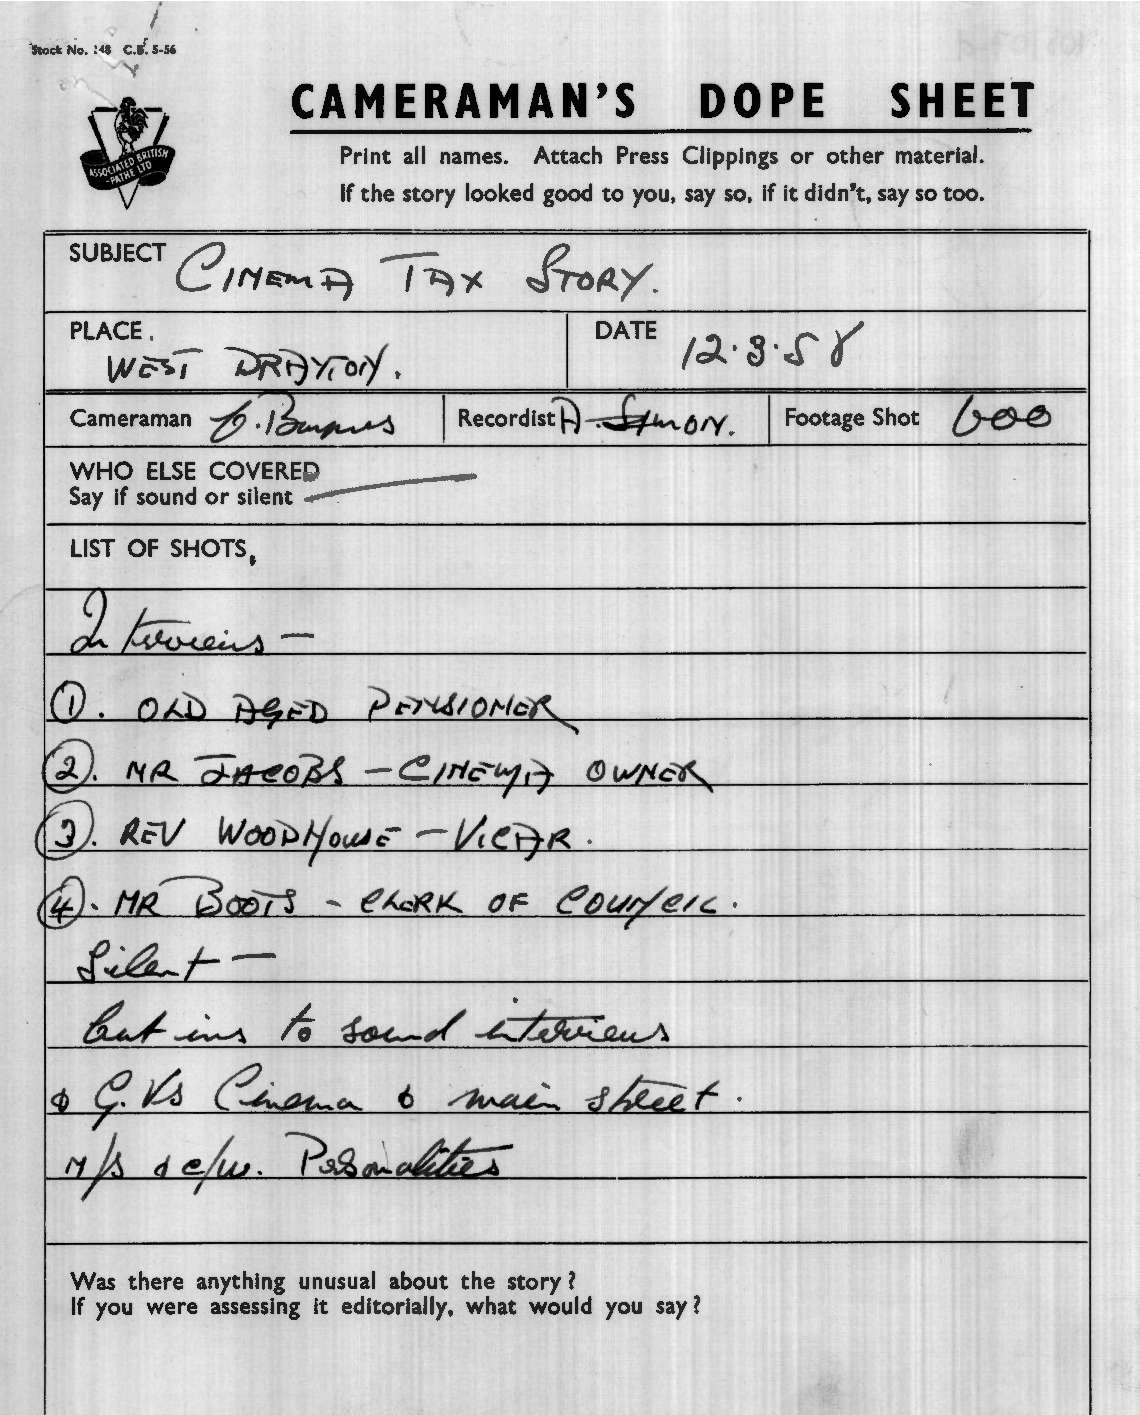 Stock No. 148 C.B. 5-56
CAMERAMAN'S DOPE SHEET
ASSOCIATED BRITISH
-PATHE LTD
Print all names. Attach Press Clippings or other material.
If the story looked good to you, say so, if it didn't, say so too.
SUBJECT CINEMA TAX STORY.
PLACE. WEST DRAYTON.
DATE 12.3.58
Cameraman
Recordist A. SIMON.
Footage Shot 600
WHO ELSE COVERED
Say if sound or silent —
LIST OF SHOTS,
Interviews —
1. OLD AGED PENSIONER
2. MR JACOBS — CINEMA OWNER
3. REV WOODHOUSE — VICAR.
4. MR BOOTS - CLERK OF COUNCIL.
Silent —
Cut ins to sound interviews
& G.Vs Cinema & main street.
M/S & c/u. Personalities
Was there anything unusual about the story?
If you were assessing it editorially, what would you say?